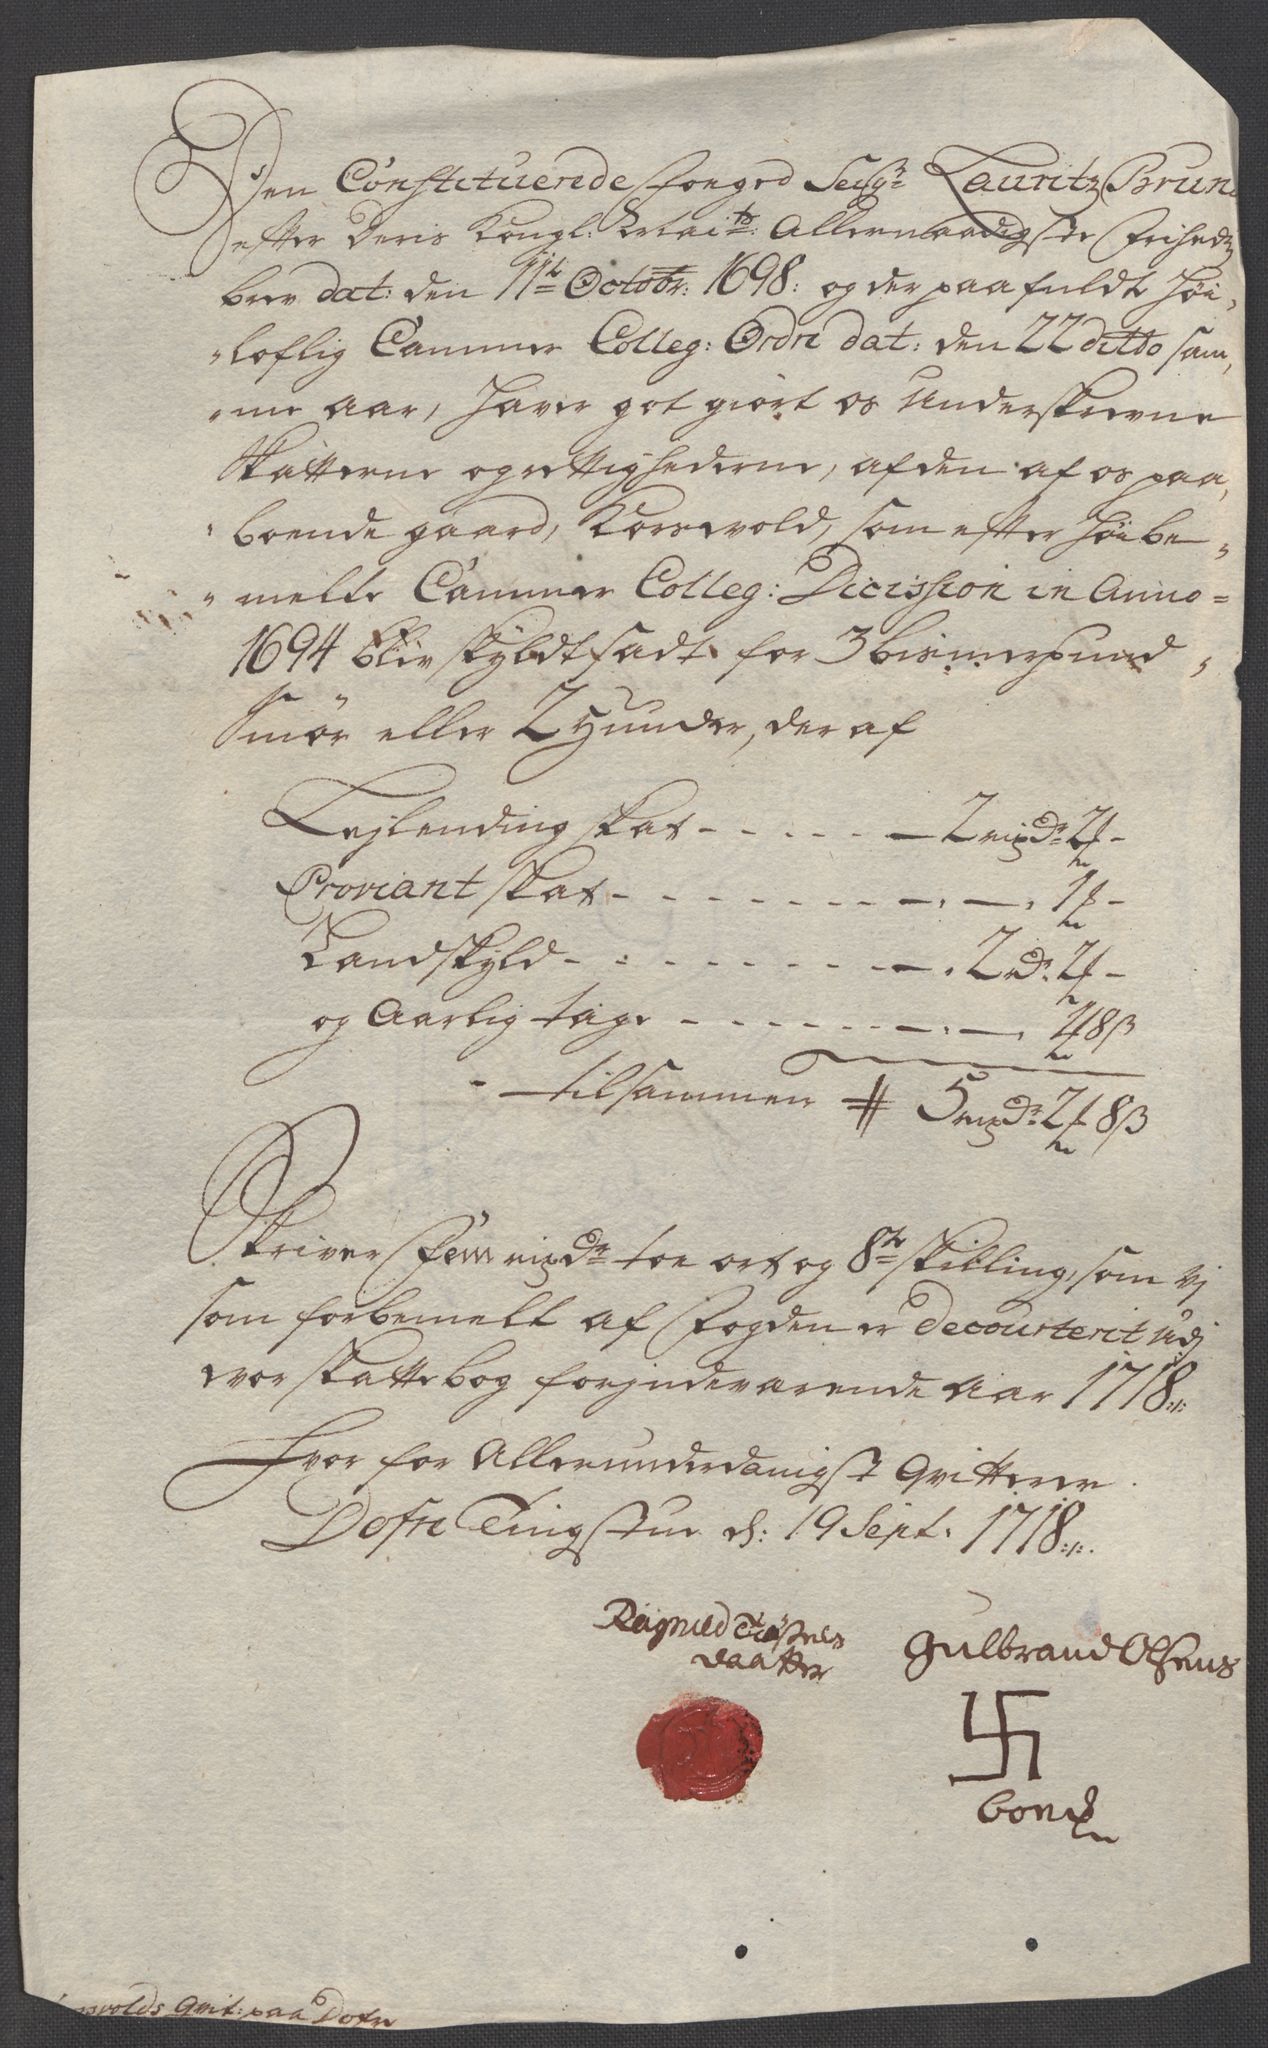 Den Constituerede Foged Seigr Lauritz Brun
efter Deris Kongl: Maits: Allernaadigste Friheds
brev dat: den 11te Octobr: 1698: og der paa fuldte Høi,
"loflig Cammer Colleg: Ordre dat: den 22 ditto sam,
"me aar, hafver got giort os Underskrevne
Skatterne og rettighederne, af den af os paa,
"boende gaard, Korsvold, som efter høibe,,
"melte Cammer Colleg: Dicission in Anno=
1694 blev skyldtsadt for 3 bismerpund
Smør eller 2 hunder, der af
Lejlending skat - - - - - 2 rixdr 2 ℔ -
Proviant skat - - - - - - - - - 1 ℔ -
Landskyld - - - - - - - - 2 rdr 2 ℔ -
og Aarlig tage - - - - - - - 2 ℔ 8 ß
tilsammen # 5 rixdr 2 ℔ 8 ß
Skriver Fem rixdr toe ort og 8te skilling, som vj
som forbemelt af Fogden er decourterit udj
vor skattebog for jndeværende Aar 1718:/:
Hvor for Allerunderdanigst Qvitterer
Dofre Tingstue d: 19 Sept. 1718:/:.
Ragnild
daatter
Gulbrand Olsens
bom
Qvit: paa Dofre